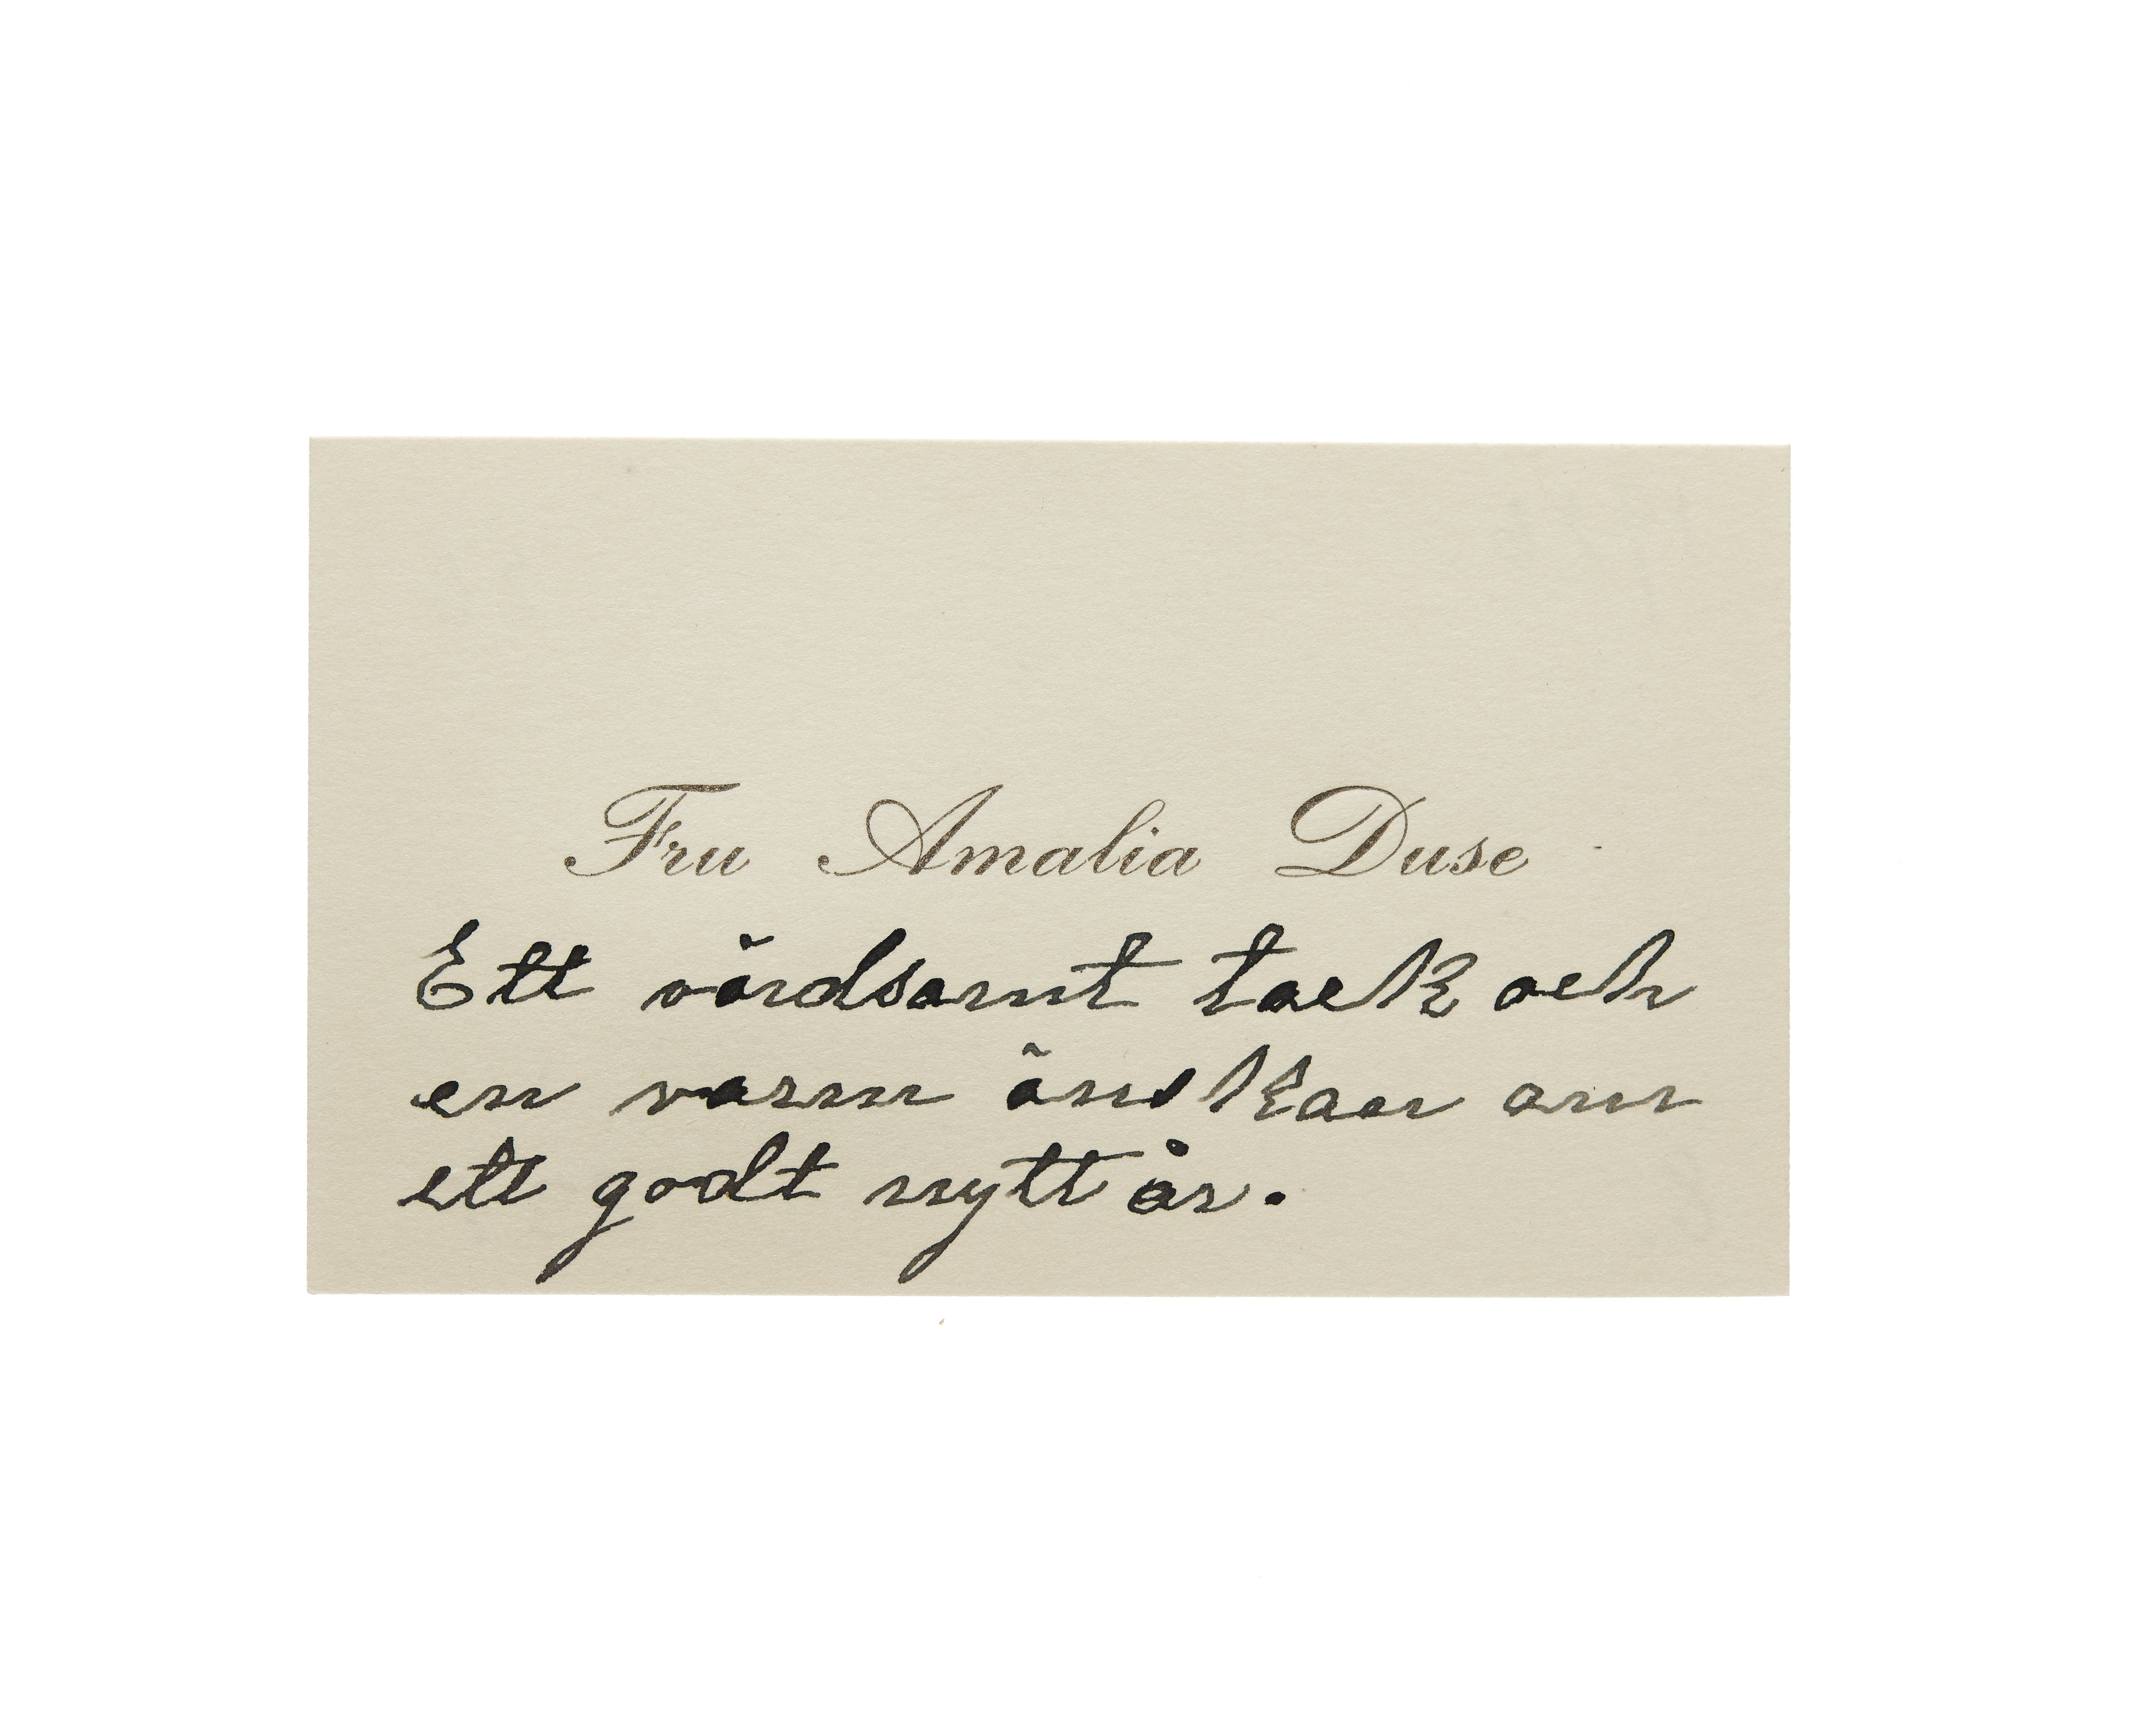 Fru Amalia Duse
Ett värdsamt tack och
en varm önskan om
ett godt nytt år.